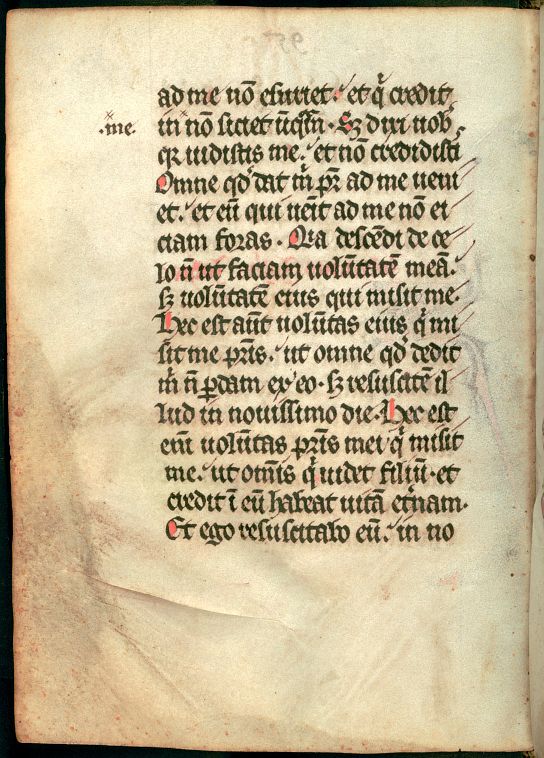 ad me nō esuriet. et q̄ credit
.me.
in nō sitiet ūq̄m. Sʒ dixi uob
qr uidistis me. et nō credidisti
Omne qd̄ dat m̄ pr̄ ad me ueni
et. et eū qui uēit ad me nō ei
ciam foras. Qia descēdi de ce
lo n̄ ut faciam uolūtatē meā.
sʒ uolūtatē eius qui misit me.
Hec est aūt uolūtas eius q̄ mi
sit me pr̄is. ut omne qd̄ dedit
m̄ n̄ ꝑdam ex eo. sʒ resuscitē il
lud in nouissimo die. Hec est
eni̅ uolūtas pr̄is mei q̄ misit
me. ut om̄is q̄ uidet filiū. et
credit ī eū habeat uitā et̄nam.
Et ego resuscitabo eū. in no